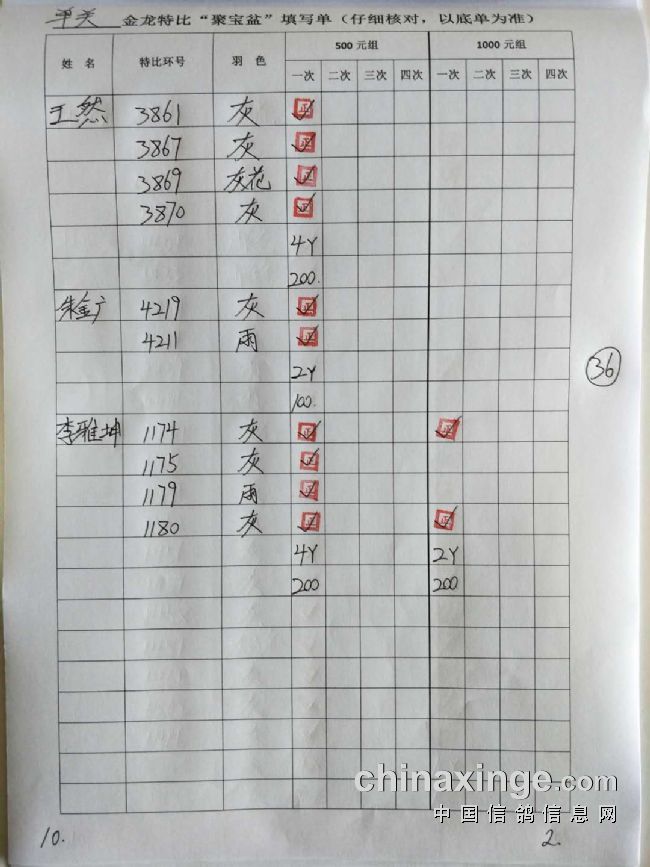 单关 金龙特比“聚宝盆”填写单（仔细核对，以底单为准）
姓 名 特比环号 羽 色 500 元组 1000 元组
一次 二次 三次 四次 一次 二次 三次 四次
王然 3861 灰 正
3867 灰 正
3869 灰花 正
3870 灰 正
4Y
200.
朱金广 4219 灰 正
4211 雨 正
2Y
100.
36
李雅坤 1174 灰 正 正
1175 灰 正
1179 雨 正
1180 灰 正 正
4Y 2Y
200 200
chinaxinge.com
中国信鸽信息网
10. 2.